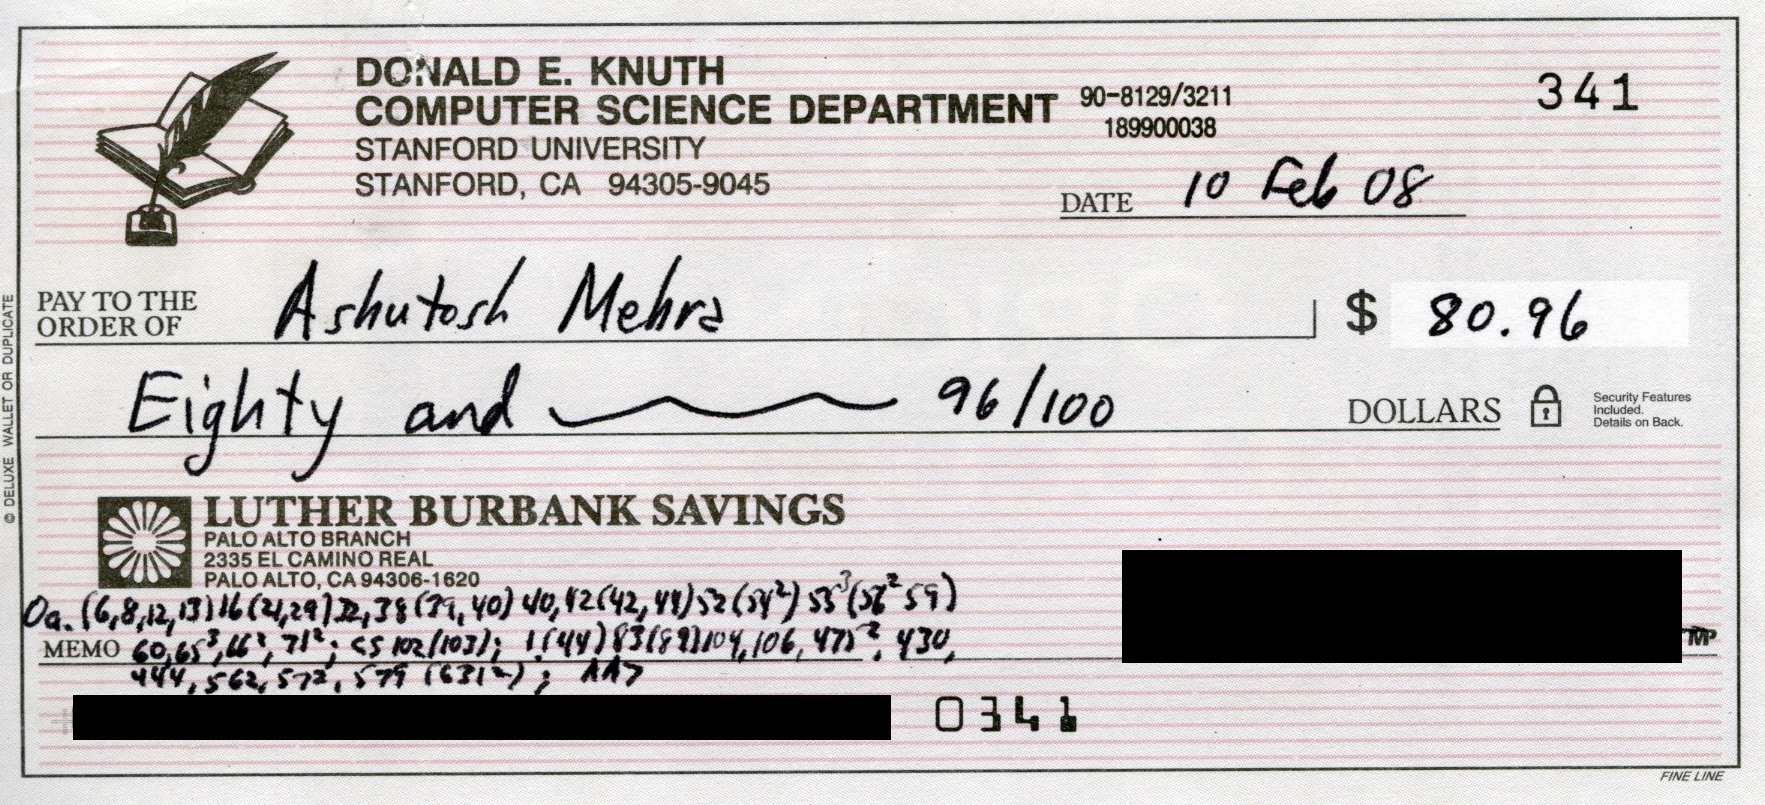 DONALD E. KNUTH
COMPUTER SCIENCE DEPARTMENT
STANFORD UNIVERSITY
STANFORD, CA 94305-9045
90-8129/3211
189900038
341
DATE 10 Feb 08
PAY TO THE
ORDER OF Ashutosh Mehra $ 80.96
Eighty and 96/100 DOLLARS
Security Features
Included.
Details on Back.
© DELUXE WALLET OR DUPLICATE
LUTHER BURBANK SAVINGS
PALO ALTO BRANCH
2335 EL CAMINO REAL
PALO ALTO, CA 94306-1620
0a. (6,8,12,13)16(21,29)32,38(39,40)40,42(42,44)52(54²)55³(56²59)
MEMO 60,65³,66²,71²; <5 102(103); 1(44)83(89)104,106, 430,
444, 562, 572, 579 (631²);
MP
0341
FINE LINE